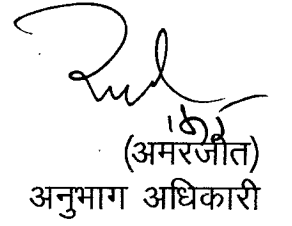 (अमरजीत)
अनुभाग अधिकारी